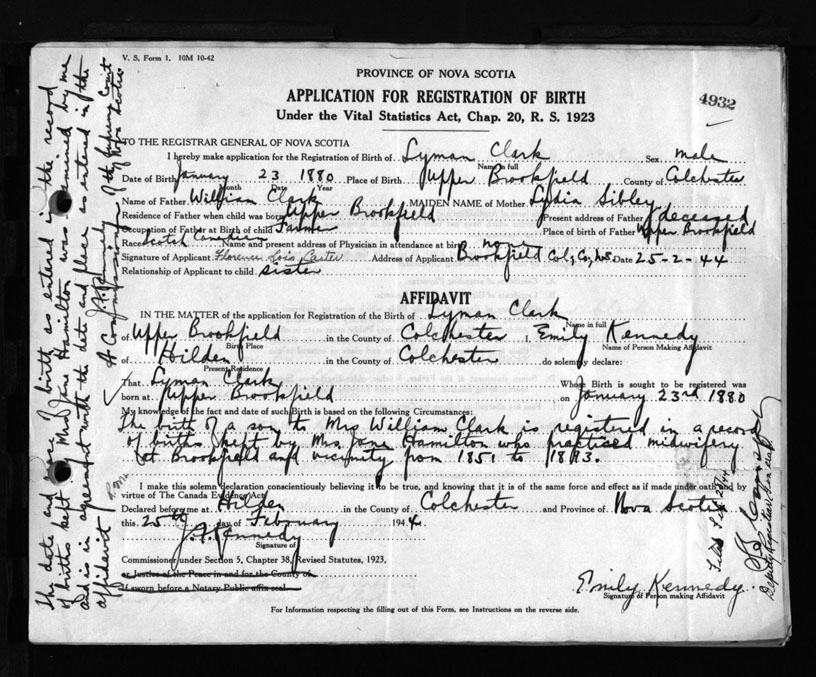 V. S. Form 1. 10M 10-42
PROVINCE OF NOVA SCOTIA
4932
APPLICATION FOR REGISTRATION OF BIRTH
Under the Vital Statistics Act, Chap. 20, R. S. 1923
TO THE REGISTRAR GENERAL OF NOVA SCOTIA
I hereby make application for the Registration of Birth of Lyman Clark Sex male
Name in full
Date of Birth January 23 1880 Place of Birth Upper Brookfield County of Colchester
Month Date Year
Name of Father William Clark MAIDEN NAME of Mother Lydia Sibley
Residence of Father when child was born Upper Brookfield Present address of Father deceased
Occupation of Father at Birth of child Farmer Place of birth of Father Upper Brookfield
Race Scotch Canadian Name and present address of Physician in attendance at birth none
Signature of Applicant Florence Lois Carter Address of Applicant Brookfield Col. Co. N.S. Date 25-2-44
Relationship of Applicant to child sister
AFFIDAVIT
IN THE MATTER of the application for Registration of the Birth of Lyman Clark
Name in full
of Upper Brookfield in the County of Colchester I, Emily Kennedy
Birth Place Name of Person Making Affidavit
of Hilden in the County of Colchester do solemnly declare:
Present Residence
That Lyman Clark Whose Birth is sought to be registered was
born at Upper Brookfield on January 23rd 1880
My knowledge of the fact and date of such Birth is based on the following Circumstances:
The birth of a son to Mrs William Clark is registered in a record
of births kept by Mrs. Jane Hamilton who practised midwifery
at Brookfield and vicinity from 1851 to 1893.
I make this solemn declaration conscientiously believing it to be true, and knowing that it is of the same force and effect as if made under oath and by
virtue of The Canada Evidence Act.
Declared before me at Hilden in the County of Colchester and Province of Nova Scotia
this 25th day of February 1944
J. A. Kennedy
Signature of
Commissioner under Section 5, Chapter 38, Revised Statutes, 1923,
or Justice of the Peace in and for the County of
If sworn before a Notary Public affix seal.
Emily Kennedy
Signature of Person making Affidavit
For Information respecting the filling out of this Form, see Instructions on the reverse side.
The date and place of birth as entered in the record
of births kept by Mrs Jane Hamilton was examined by me
and is in agreement with the date and place as entered in the
affidavit
J. A. Kennedy
A Commissioner of the Supreme Court
of Nova Scotia
Deputy Registrar General